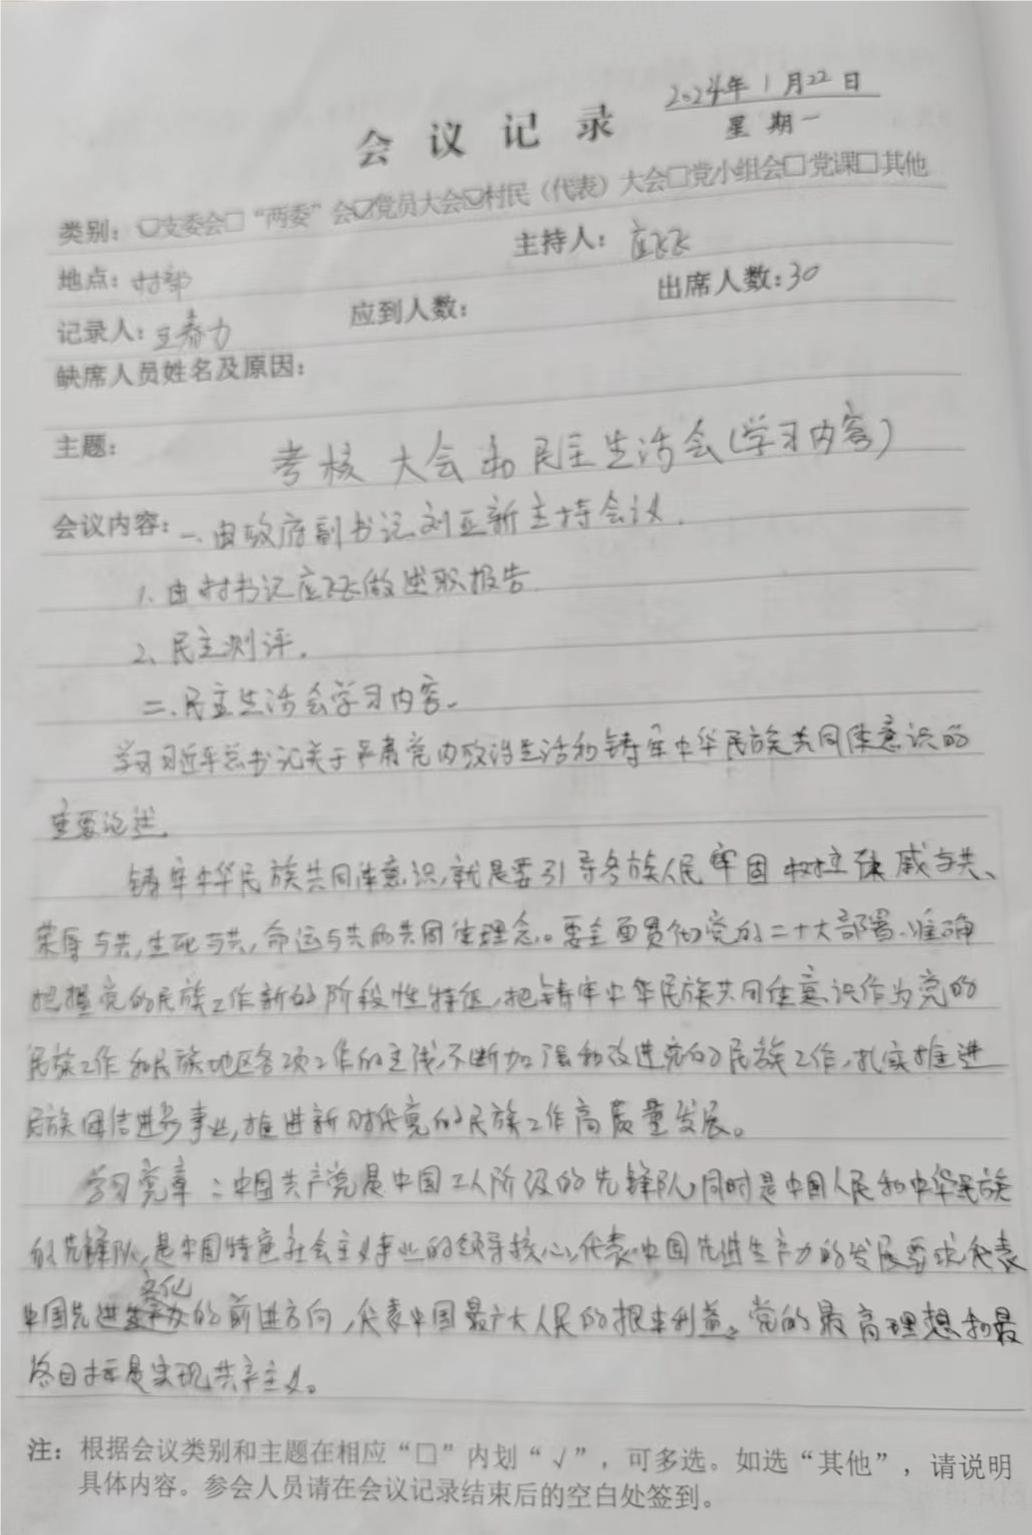 2024年1月22日
会议记录
星期一
类别：☑支委会□“两委”会☑党员大会☑村民（代表）大会□党小组会□党课□其他
地点：村部 主持人：应飞飞
记录人：王春力 应到人数： 出席人数：30
缺席人员姓名及原因：
主题： 考核大会和民主生活会(学习内容)
会议内容：一、由政府副书记刘亚新主持会议.
1、由村书记应飞飞做述职报告.
2、民主测评.
二、民主生活会学习内容.
学习习近平总书记关于严肃党内政治生活和铸牢中华民族共同体意识的
重要论述.
铸牢中华民族共同体意识,就是要引导各族人民牢固树立休戚与共、
荣辱与共,生死与共,命运与共的共同体理念。要全面贯彻党的二十大部署、准确
把握党的民族工作新的阶段性特征,把铸牢中华民族共同体意识作为党的
民族工作和民族地区各项工作的主线,不断加强和改进党的民族工作,扎实推进
民族团结进步事业,推进新时代党的民族工作高质量发展。
学习党章：中国共产党是中国工人阶级的先锋队,同时是中国人民和中华民族
的先锋队,是中国特色社会主义事业的领导核心,代表中国先进生产力的发展要求,代表
中国先进文化的前进方向,代表中国最广大人民的根本利益。党的最高理想和最
终目标是实现共产主义。
注：根据会议类别和主题在相应“□”内划“√”，可多选。如选“其他”，请说明
具体内容。参会人员请在会议记录结束后的空白处签到。